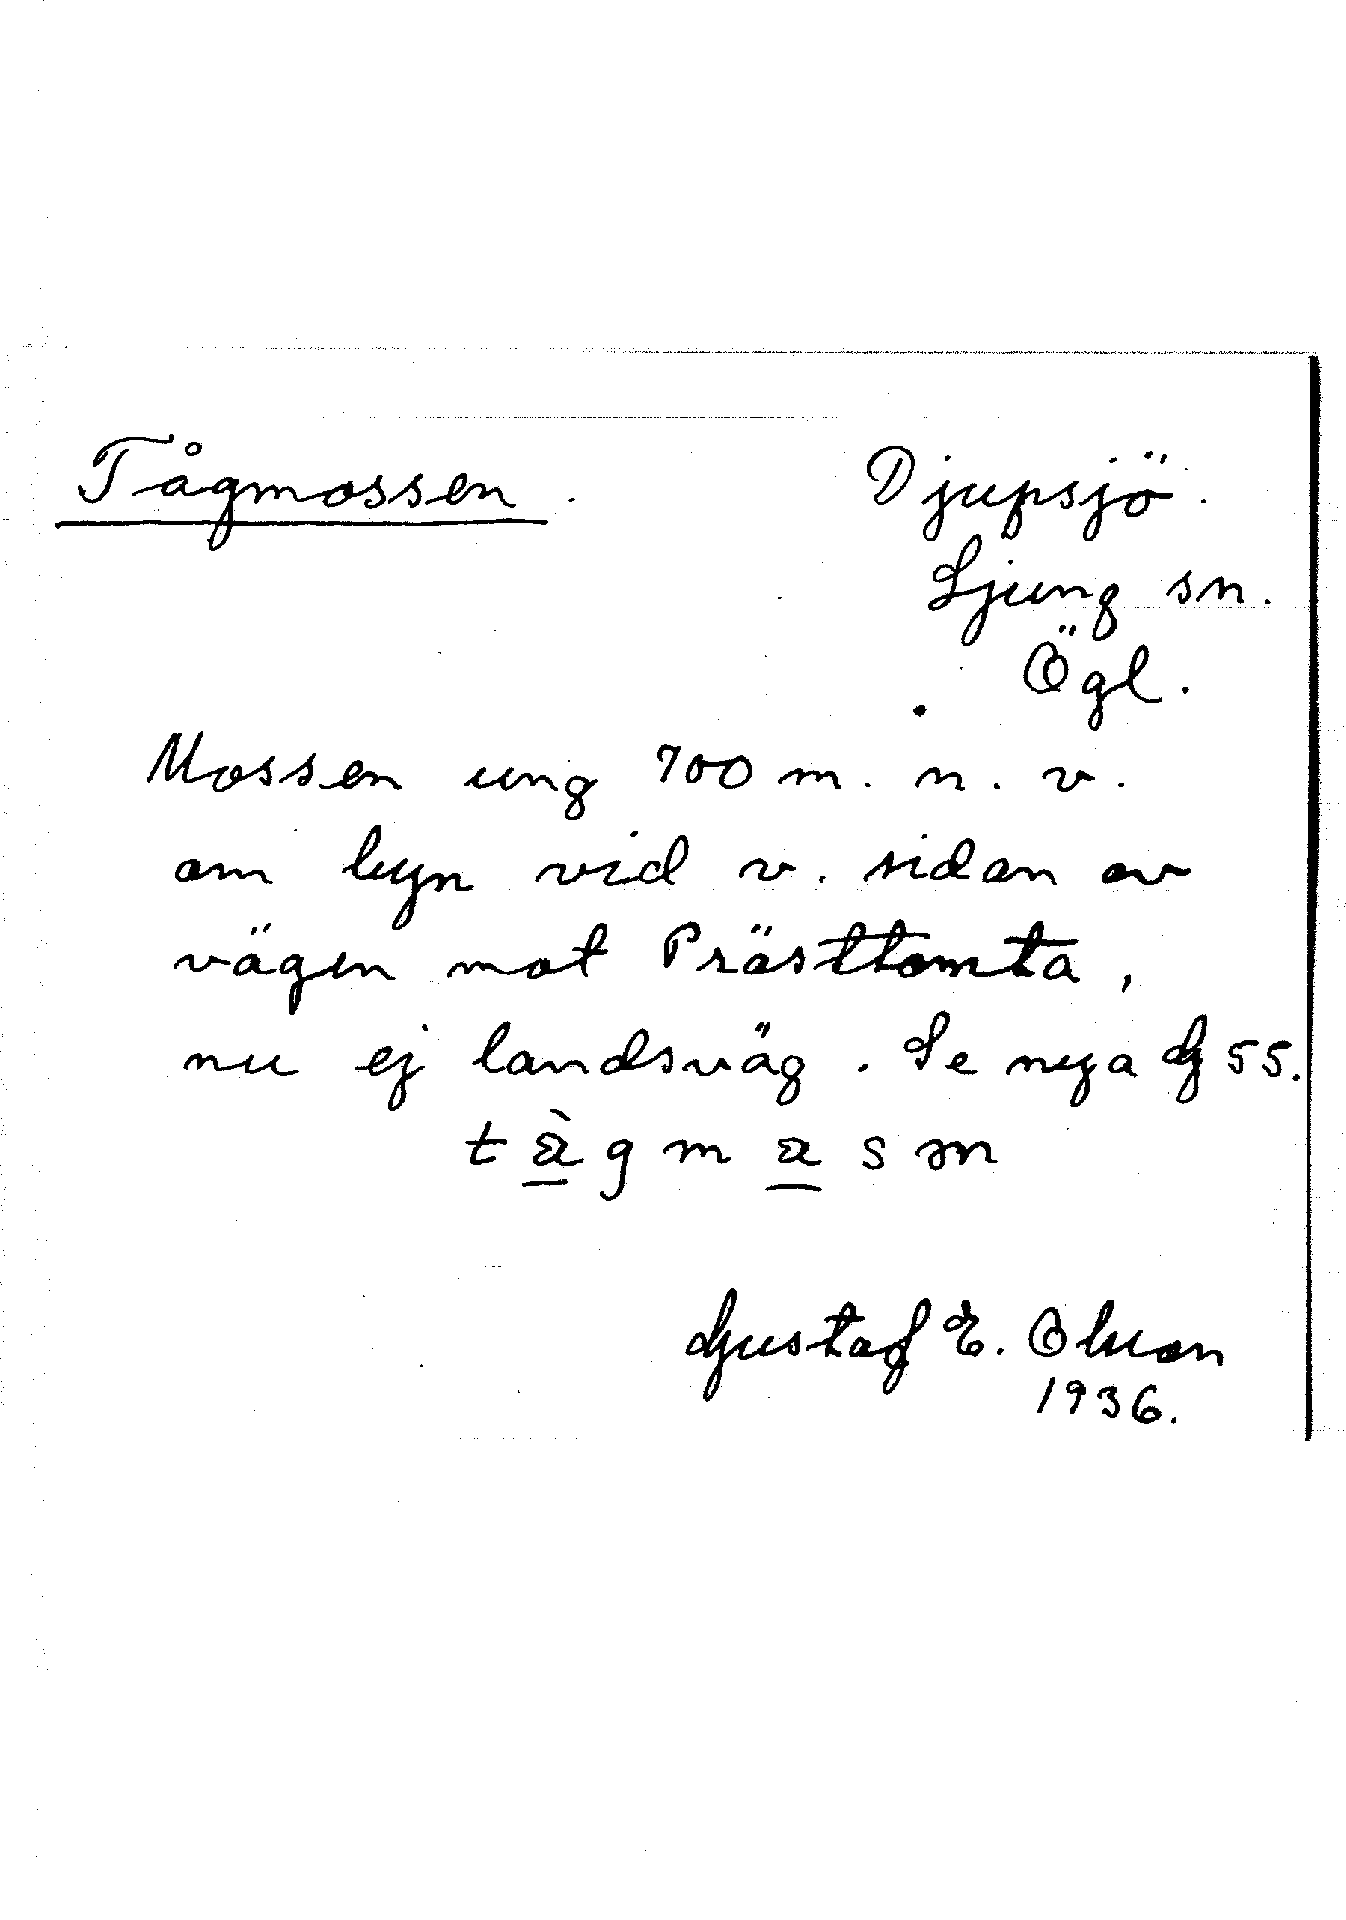 Tågmossen.
Djupsjö.
Ljung sn.
Ögl.
Mossen ung 700 m. n. v.
om byn vid v. sidan av
vägen mot Prästtomta,
nu ej landsväg. Se nya G 55.
Gustaf E. Olson
1936.